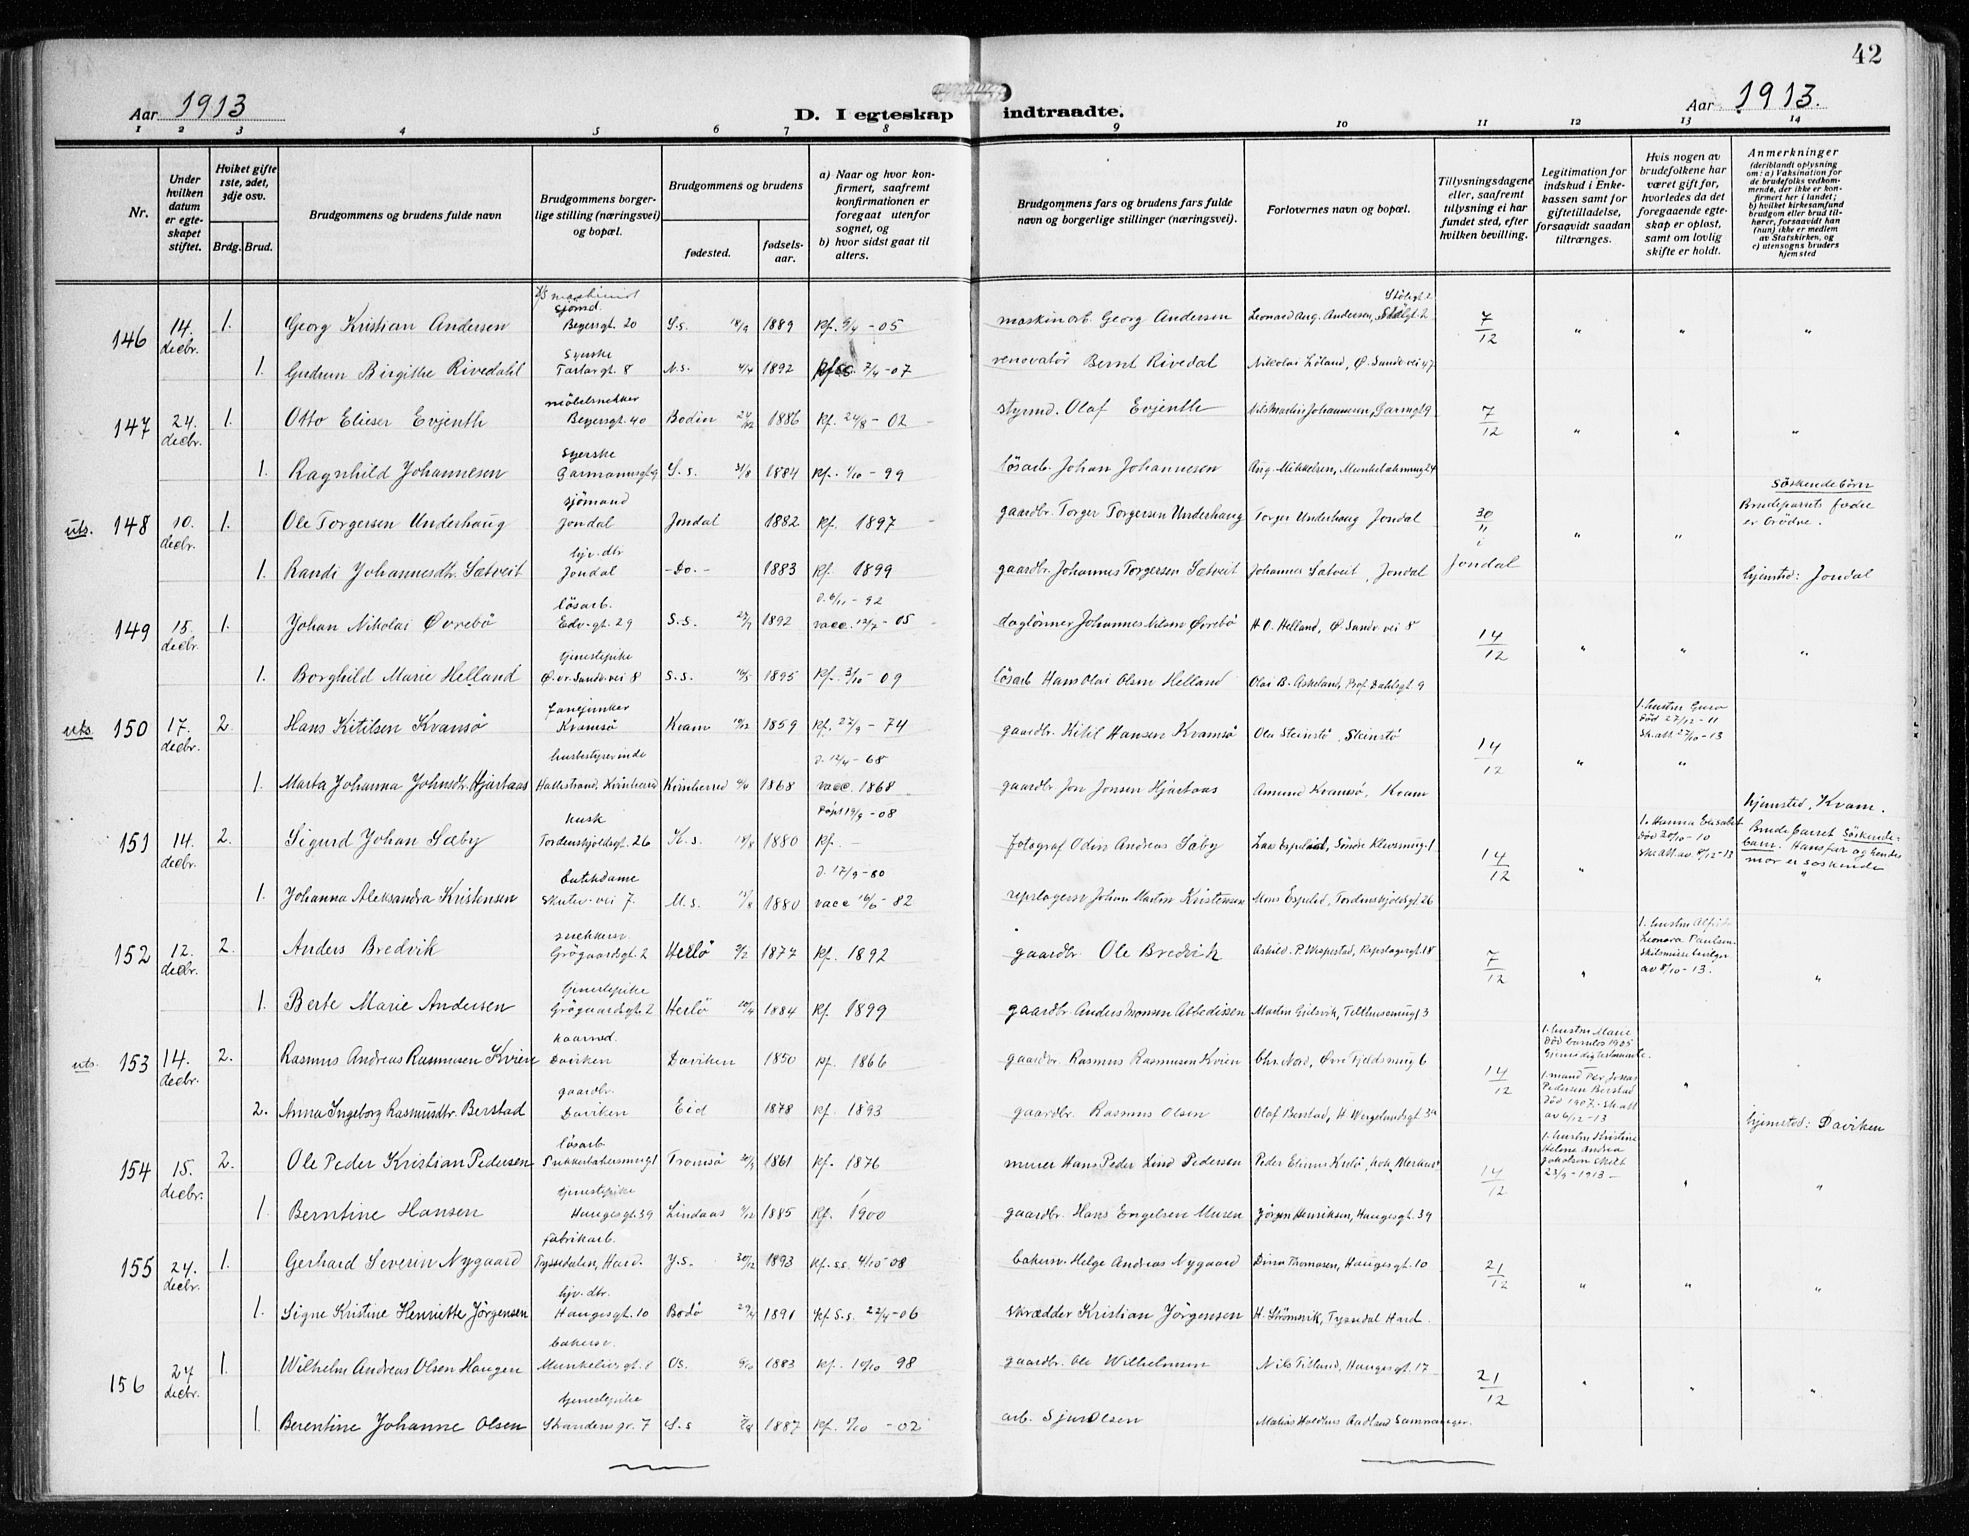 42
Aar 1913
D. I egteskap indtraadte.
Aar 1913.
1 2 3 4 5 6 7 8 9 10 11 12 13 14
Nr.
Under hvilken datum er egteskapet stiftet.
Hvilket gifte 1ste, 2det, 3dje osv.
Brdg. Brud.
Brudgommens og brudens fulde navn
Brudgommens borgerlige stilling (næringsvei) og bopæl.
Brudgommens og brudens
fødested.
fødselsaar.
a) Naar og hvor konfirmert, saafremt konfirmationen er foregaat utenfor sognet, og
b) hvor sidst gaat til alters.
Brudgommens fars og brudens fars fulde navn og borgerlige stillinger (næringsvei).
Forlovernes navn og bopæl.
Tillysningsdagene eller, saafremt tillysning ei har fundet sted, efter hvilken bevilling.
Legitimation for indskud i Enkekassen samt for giftetilladelse, forsaavidt saadan tiltrænges.
Hvis nogen av brudefolkene har været gift før, hvorledes da det foregaaende egteskap er opløst, samt om lovlig skifte er holdt.
Anmerkninger
(deriblandt oplysning om: a) Vaksination for de brudefolks vedkommende, der ikke er konfirmert her i landet;
b) hvilket kirkesamfund brudgom eller brud tilhører, forsaavidt han (hun) ikke er medlem av Statskirken, og
c) utensogns bruders hjemsted
146 14. decbr. 1. Georg Kristian Andersen sjömd. Beyersgt. 20 S.s. 1889 Kf. 9/4 - 05 maskinarb. Georg Andersen Leonard Aug. Andersen, Stølegt 2 7/12 " " "
1. Gudrun Birgithe Rivedahl Syerske Tartargt. 8 N.s. 4/4 1892 2/4 - 07 renovatør Bernt Rivedal Nikolai Løland, Ø. Sandv. vei 47
147 24. decbr. 1. Otto Elieser Evjenth möbelsnekker Beyersgt 40 Bodin 24/12 1886 Kf. 24/8 - 02 styrmd. Olaf Evjenth Nils Martin Johannesen, Garmgt 9 7/12 " " "
1. Ragnhild Johannesen syerske Garmannsgt 9 S.s. 31/8 1884 Kf. 1/10 - 99 lösarb. Johan Johannesen Aug. Mikkelsen,
uts. 148 10. decbr. 1. Ole Torgersen Underhaug sjömand Jondal Jondal 1882 Kf. 1897 gaardbr. Torger Torgersen Underhaug Torger Underhaug Jondal 30/11 i Jondal " " Söskendebörn Brudeparets fædre er brödre.
1. Randi Johannesdtr. Sætveit hjv. dtr Jondal - Do. - 1883 Kf. 1899 gaardbr. Johannes Torgersen Sætveit Johannes Sætveit, Jondal hjemsted: Jondal
149 18. decbr. 1. Johan Nikolai Øvrebö lösarb. Edv. gt. 29 S.s. 1892 d. 6/11 - 92 vacc. 12/7 - 05 daglönner Johannes Nilsen Øvrebö H. O. Helland, Ø. Sandv. vei 8 14/12 " " "
1. Borghild Marie Helland tjenestepike Øvr. Sandv. vei 8 S.s. 1895 Kf. 3/10 - 09 lösarb Hans Olai Olsen Helland Olai B. Askeland, Prof. Dahlsgt. 9
uts. 150 17. decbr. 2. Hans Kitilsen Kvamsö fanejunker Kvamsö Kvam 1859 Kf. 27/9 - 74 gaardbr. Kitil Hansen Kvamsö Ola Steinstö, Steinstö 14/12 " " 1. hustru Guro död 27/12 - 11 sk. att. 27/10 - 13
1. Marta Johanna Johnsdtr. Hjartaas husbestyrerinde Kvinherred 1868 d. 12/4 - 68 vacc. 1868 gaardbr Jon Jonsen Hjartaas Amund Kvamsö, Kvam hjemsted, Kvam.
151 14. decbr. 2. Sigurd Johan Sæby kusk Tordenskjoldsgt. 26 K.s. 1880 Kf. - fotograf Odin Andreas Sæby Lars Espeland, 14/12 " 1. Hanna Elisabet död 20/10 - 10 Brudeparret söskendebarn. Hans far og hendes mor er söskende
1. Johanna Aleksandra Kristensen butikdame Skuter. vei 7. M.s. 1880 d. 17/9 - 80 vacc 16/6 - 82 repslagersv Johan Martin Kristensen Mons Espelid, Tordenskjoldsgt. 26
152 12. decbr. 2. Anders Bredvik snekkersv Grögaardsgt. 2 Herlö 1877 Kf. 1892 gaardbr. Ole Bredvik Repslagergt 18 7/12 " 1. hustru Alfrida Leonora Paulsen. av 8/10 - 13. "
1. Berte Marie Andersen tjenestepike Grögaardsgt. 2 Herlö 1884 Kf. 1899 gaardbr. Anders Monsen Abbedissen Martin Gilsvik, 3
uts. 153 14. decbr. 2. Rasmus Andreas Rasmussen Kvien kaarmd. Daviken Daviken 1850 Kf. 1866 gaardbr. Rasmus Rasmussen Kvien Chr. Nord, Øvre Fjeldsmug 6 14/12 1. hustru Marie död barnlös 1905 "
2. Anna Ingeborg Rasmusdtr. Berstad gaardbr. Daviken Eid 1878 Kf. 1893 gaardbr. Rasmus Olsen Olaf Berstad, H. Wergelandsgt. 3a 1. mand Per Jonas Pedersen Berstad död 1907. sk. att av 6/12 - 13 hjemsted: Daviken
154 15. decbr. 2. Ole Peder Kristian Pedersen lösarb Sukkerhusmug 1 Tromsö 1861 Kf. 1876 murer Hans Peder Lind Pedersen Peder Elinus 14/12 1. hustru Kristine Helene Andrea Jakobsen skilt 23/9 - 1913 - " "
1. Berntine Hansen tjenestepike Haugesgt. 39 Lindaas 1885 Kf. 1900 gaardbr. Hans Engelsen Muren Jørgen Henriksen, Haugesgt. 39
155 24. decbr. 1. Gerhard Severin Nygaard fabrikarb. Tyssedalen, Hard. J.s. 30/12 1893 Kf. s.s. 4/10 - 08 bakersv. Helge Andreas Nygaard Dina Thomasen, Haugesgt. 10 21/12 " " "
1. Signe Kristine Henriette Jörgensen hjv. dtr. Haugesgt. 10 Bodö 1891 Kf S.s. 22/4 - 06 skrædder Kristian Jörgensen H. Strömsvik, Tyssedal Hard.
156 24 decbr. 1. Wilhelm Andreas Olsen Haugen bakersv. Munkelivsgt. 8 Os. 1883 Kf. 10/10 98 gaardbr. Ole Wilhelmsen Nils Titland, Haugesgt. 17 21/12 " " "
1. Berentine Johanne Olsen tjenestepike Strandens gr. 7 S.s 1887 Kf. 1/10 - 02 arb. Sjur Olsen Matias Holdhus Aadland Samnanger.